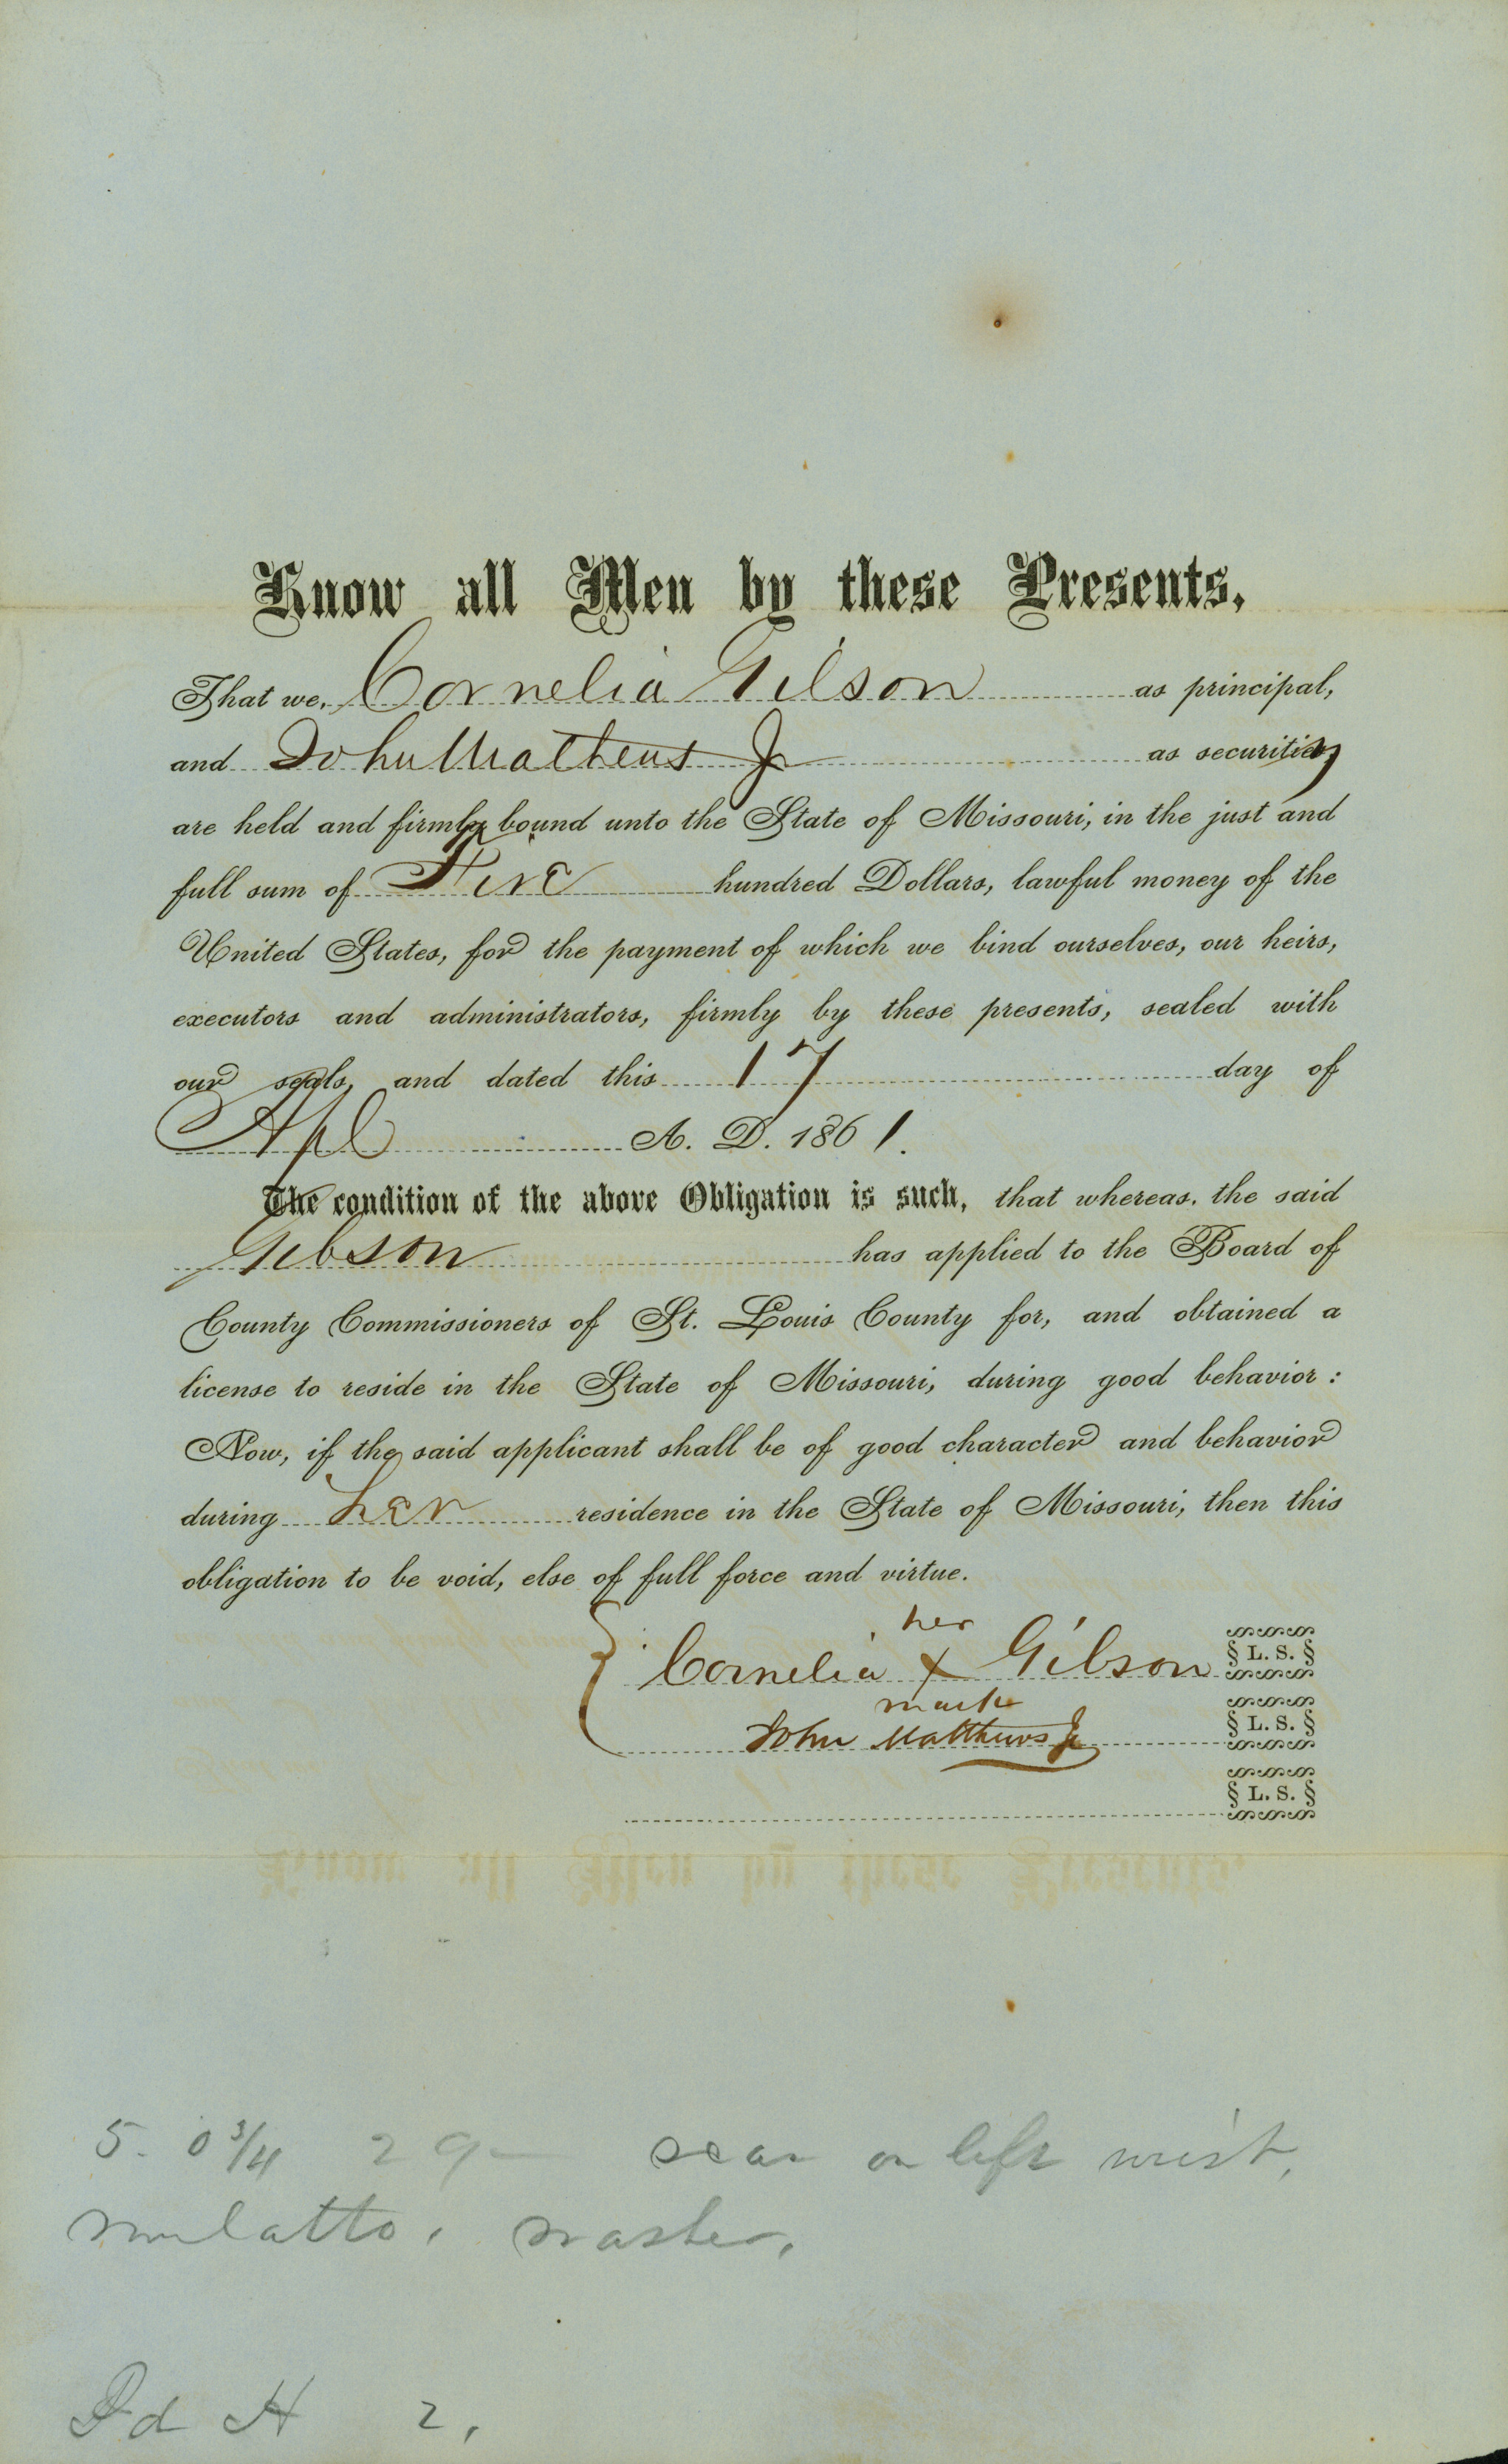 Know all Men by these Presents,
That we, Cornelia Gibson as principal,
and John Mathews Jr as securities
are held and firmly bound unto the State of Missouri, in the just and
full sum of Five hundred Dollars, lawful money of the
United States, for the payment of which we bind ourselves, our heirs,
executors and administrators, firmly by these presents, sealed with
our seals, and dated this 17 day of
Apl A. D. 1861.
The condition of the above Obligation is such, that whereas, the said
Gibson has applied to the Board of
County Commissioners of St. Louis County for, and obtained a
license to reside in the State of Missouri, during good behavior:
Now, if the said applicant shall be of good character and behavior
during her residence in the State of Missouri, then this
obligation to be void, else of full force and virtue.
her
Cornelia X Gibson § L. S. §
mark
John Matthews Jr § L. S. §
§ L. S. §
5. 0 3/4 29 scar on left wrist,
mulatto. washer.
Pd H 2.